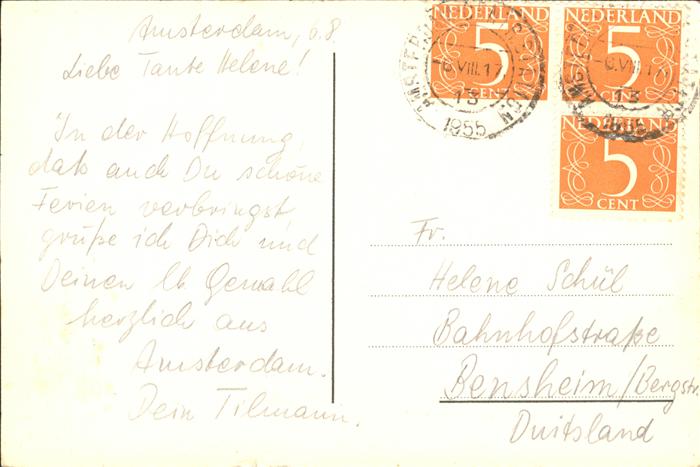 Amsterdam, 6.8.
Liebe Tante Helene!
In der Hoffnung,
daß auch Du schöne
Ferien verbringst,
grüße ich Dich und
Deinen lb. Gemahl
herzlich aus
Amsterdam.
Dein Tilmann.
NEDERLAND
5
CENT
NEDERLAND
5
CENT
5
CENT
6.VIII.17
13
1955
6.VIII.17
13
1955
Fr.
Helene Schül
Bahnhofstraße
Bensheim/Bergstr.
Duitsland